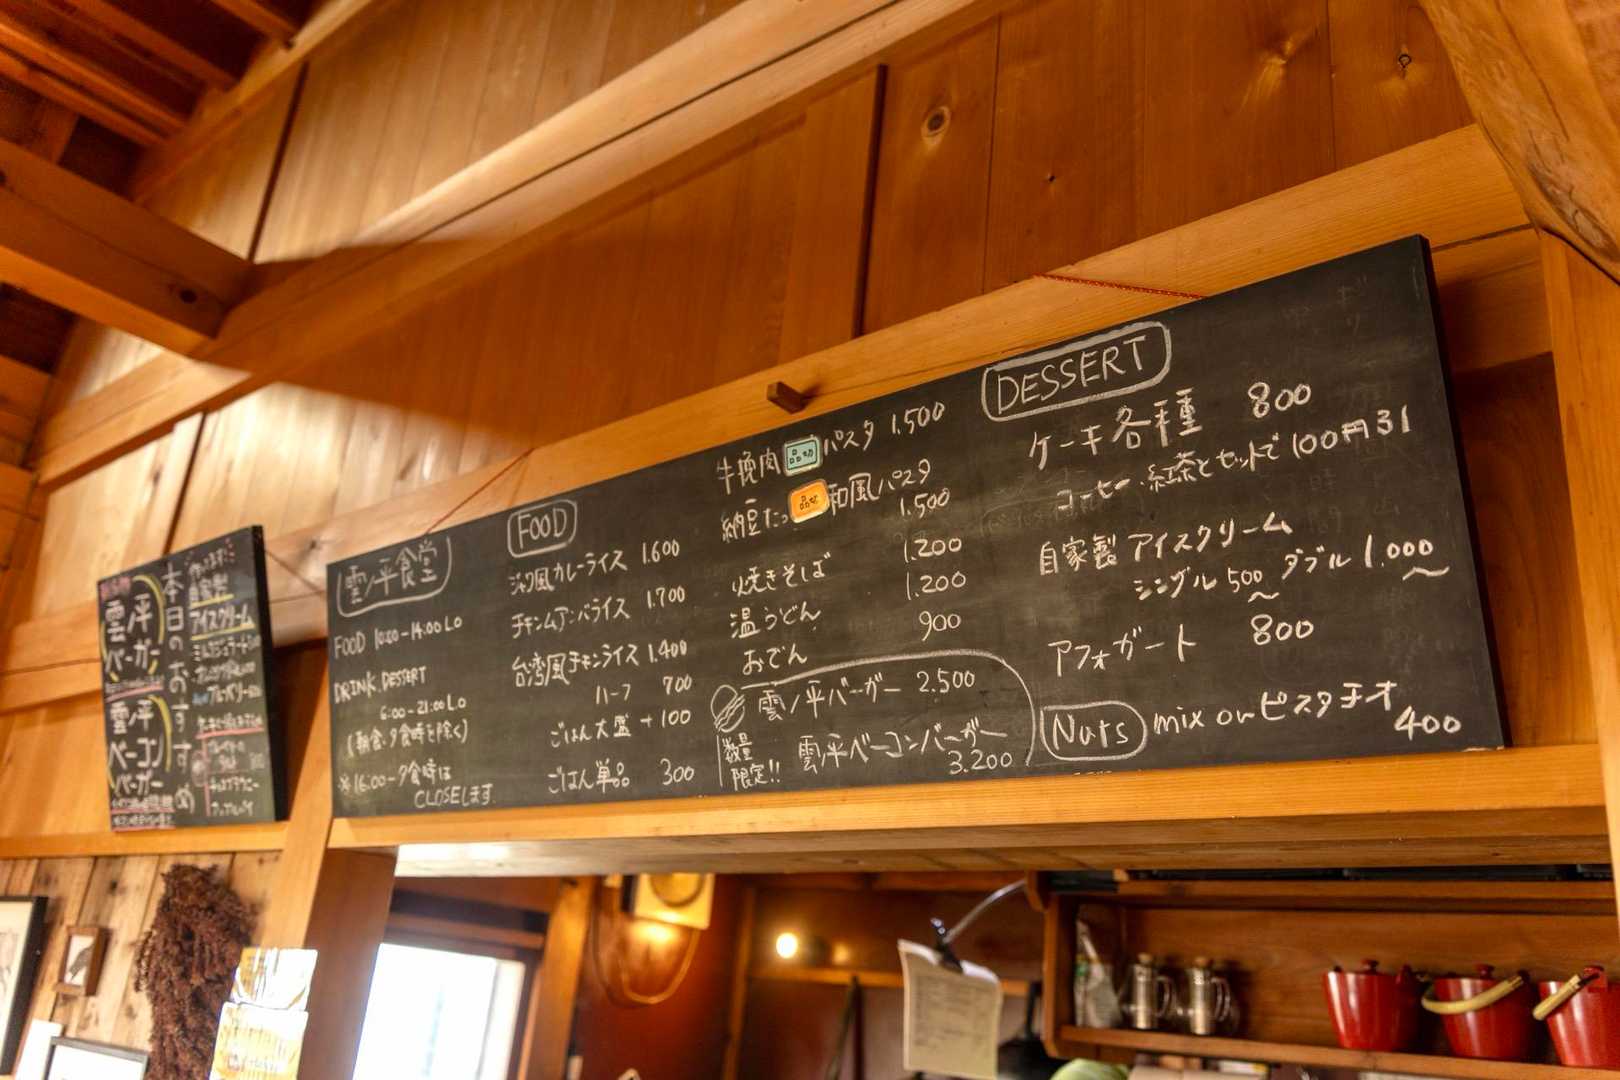 本日のおすすめ
雲ノ平
バーガー
雲ノ平
ベーコン
バーガー
自家製
アイスクリーム
雲ノ平食堂
FOOD 10:00-14:00 LO
DRINK.DESSERT
6:00-21:00 LO
(朝食・夕食時を除く)
※16:00-夕食時は
CLOSEします
FOOD
ジャワ風カレーライス 1.600
チキンムアンバライス 1.700
台湾風チキンライス 1.400
ハーフ 700
ごはん大盛 +100
ごはん単品 300
牛挽肉 品切 パスタ 1.500
納豆たっ 品切 和風パスタ
1.500
焼きそば 1.200
温うどん 1.200
おでん 900
雲ノ平バーガー 2.500
数量
限定!!
雲ノ平ベーコンバーガー
3.200
DESSERT
ケーキ各種 800
コーヒー・紅茶とセットで100円引
自家製アイスクリーム
シングル 500~ ダブル 1.000~
アフォガート 800
Nuts mix or ピスタチオ
400